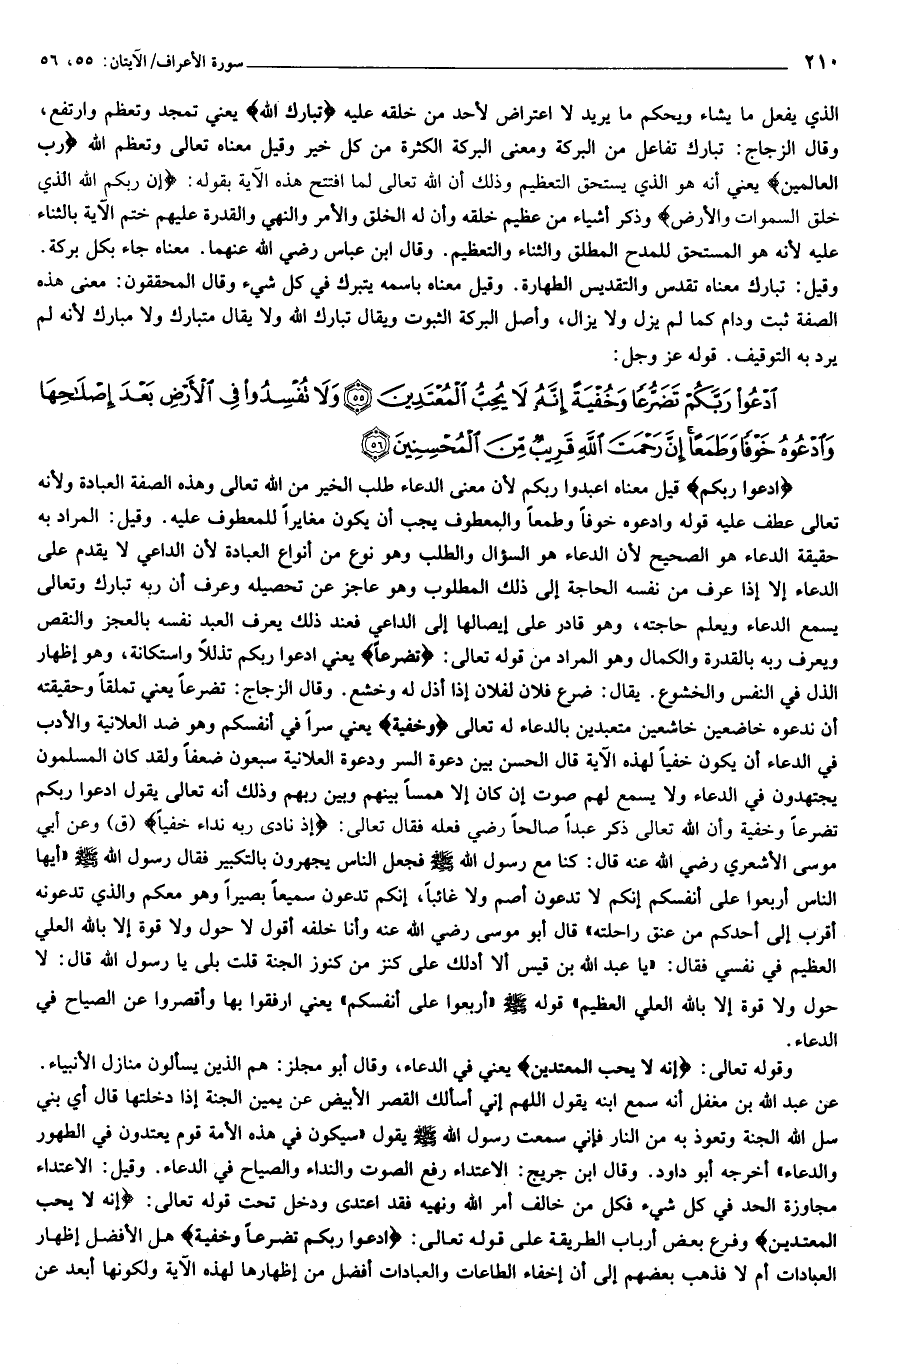 ٢١٠ سورة الأعراف/ الآيتان: ٥٥، ٥٦
الذي يفعل ما يشاء ويحكم ما يريد لا اعتراض لأحد من خلقه عليه ﴿تبارك الله﴾ يعني تمجد وتعظم وارتفع،
وقال الزجاج: تبارك تفاعل من البركة ومعنى البركة الكثرة من كل خير وقيل معناه تعالى وتعظم الله ﴿رب
العالمين﴾ يعني أنه هو الذي يستحق التعظيم وذلك أن الله تعالى لما افتتح هذه الآية بقوله: ﴿إن ربكم الله الذي
خلق السموات والأرض﴾ وذكر أشياء من عظيم خلقه وأن له الخلق والأمر والنهي والقدرة عليهم ختم الآية بالثناء
عليه لأنه هو المستحق للمدح المطلق والثناء والتعظيم. وقال ابن عباس رضي الله عنهما. معناه جاء بكل بركة.
وقيل: تبارك معناه تقدس والتقديس الطهارة. وقيل معناه باسمه يتبرك في كل شيء وقال المحققون: معنى هذه
الصفة ثبت ودام كما لم يزل ولا يزال، وأصل البركة الثبوت ويقال تبارك الله ولا يقال متبارك ولا مبارك لأنه لم
يرد به التوقيف. قوله عز وجل:
ٱدْعُوا۟ رَبَّكُمْ تَضَرُّعًا وَخُفْيَةً إِنَّهُۥ لَا يُحِبُّ ٱلْمُعْتَدِينَ ٥٥ وَلَا تُفْسِدُوا۟ فِى ٱلْأَرْضِ بَعْدَ إِصْلَٰحِهَا
وَٱدْعُوهُ خَوْفًا وَطَمَعًا إِنَّ رَحْمَتَ ٱللَّهِ قَرِيبٌ مِّنَ ٱلْمُحْسِنِينَ ٥٦
﴿ادعوا ربكم﴾ قيل معناه اعبدوا ربكم لأن معنى الدعاء طلب الخير من الله تعالى وهذه الصفة العبادة ولأنه
تعالى عطف عليه قوله وادعوه خوفاً وطمعاً والمعطوف يجب أن يكون مغايراً للمعطوف عليه. وقيل: المراد به
حقيقة الدعاء هو الصحيح لأن الدعاء هو السؤال والطلب وهو نوع من أنواع العبادة لأن الداعي لا يقدم على
الدعاء إلا إذا عرف من نفسه الحاجة إلى ذلك المطلوب وهو عاجز عن تحصيله وعرف أن ربه تبارك وتعالى
يسمع الدعاء ويعلم حاجته، وهو قادر على إيصالها إلى الداعي فعند ذلك يعرف العبد نفسه بالعجز والنقص
ويعرف ربه بالقدرة والكمال وهو المراد من قوله تعالى: ﴿تضرعاً﴾ يعني ادعوا ربكم تذللاً واستكانة، وهو إظهار
الذل في النفس والخشوع. يقال: ضرع فلان لفلان إذا أذل له وخشع. وقال الزجاج: تضرعاً يعني تملقاً وحقيقته
أن ندعوه خاضعين خاشعين متعبدين بالدعاء له تعالى ﴿وخفية﴾ يعني سراً في أنفسكم وهو ضد العلانية والأدب
في الدعاء أن يكون خفياً لهذه الآية قال الحسن بين دعوة السر ودعوة العلانية سبعون ضعفاً ولقد كان المسلمون
يجتهدون في الدعاء ولا يسمع لهم صوت إن كان إلا همساً بينهم وبين ربهم وذلك أنه تعالى يقول ادعوا ربكم
تضرعاً وخفية وأن الله تعالى ذكر عبداً صالحاً رضي فعله فقال تعالى: ﴿إذ نادى ربه نداء خفياً﴾ (ق) وعن أبي
موسى الأشعري رضي الله عنه قال: كنا مع رسول الله ﷺ فجعل الناس يجهرون بالتكبير فقال رسول الله ﷺ «أيها
الناس أربعوا على أنفسكم إنكم لا تدعون أصم ولا غائباً، إنكم تدعون سميعاً بصيراً وهو معكم والذي تدعونه
أقرب إلى أحدكم من عنق راحلته» قال أبو موسى رضي الله عنه وأنا خلفه أقول لا حول ولا قوة إلا بالله العلي
العظيم في نفسي فقال: «يا عبد الله بن قيس ألا أدلك على كنز من كنوز الجنة قلت بلى يا رسول الله قال: لا
حول ولا قوة إلا بالله العلي العظيم» قوله ﷺ «أربعوا على أنفسكم» يعني ارفقوا بها وأقصروا عن الصياح في
الدعاء.
وقوله تعالى: ﴿إنه لا يحب المعتدين﴾ يعني في الدعاء، وقال أبو مجلز: هم الذين يسألون منازل الأنبياء.
عن عبد الله بن مغفل أنه سمع ابنه يقول اللهم إني أسألك القصر الأبيض عن يمين الجنة إذا دخلتها قال أي بني
سل الله الجنة وتعوذ به من النار فإني سمعت رسول الله ﷺ يقول «سيكون في هذه الأمة قوم يعتدون في الطهور
والدعاء» أخرجه أبو داود. وقال ابن جريج: الاعتداء رفع الصوت والنداء والصياح في الدعاء. وقيل: الاعتداء
مجاوزة الحد في كل شيء فكل من خالف أمر الله ونهيه فقد اعتدى ودخل تحت قوله تعالى: ﴿إنه لا يحب
المعتدين﴾ وفرع بعض أرباب الطريقة على قوله تعالى: ﴿ادعوا ربكم تضرعاً وخفية﴾ هل الأفضل إظهار
العبادات أم لا فذهب بعضهم إلى أن إخفاء الطاعات والعبادات أفضل من إظهارها لهذه الآية ولكونها أبعد عن